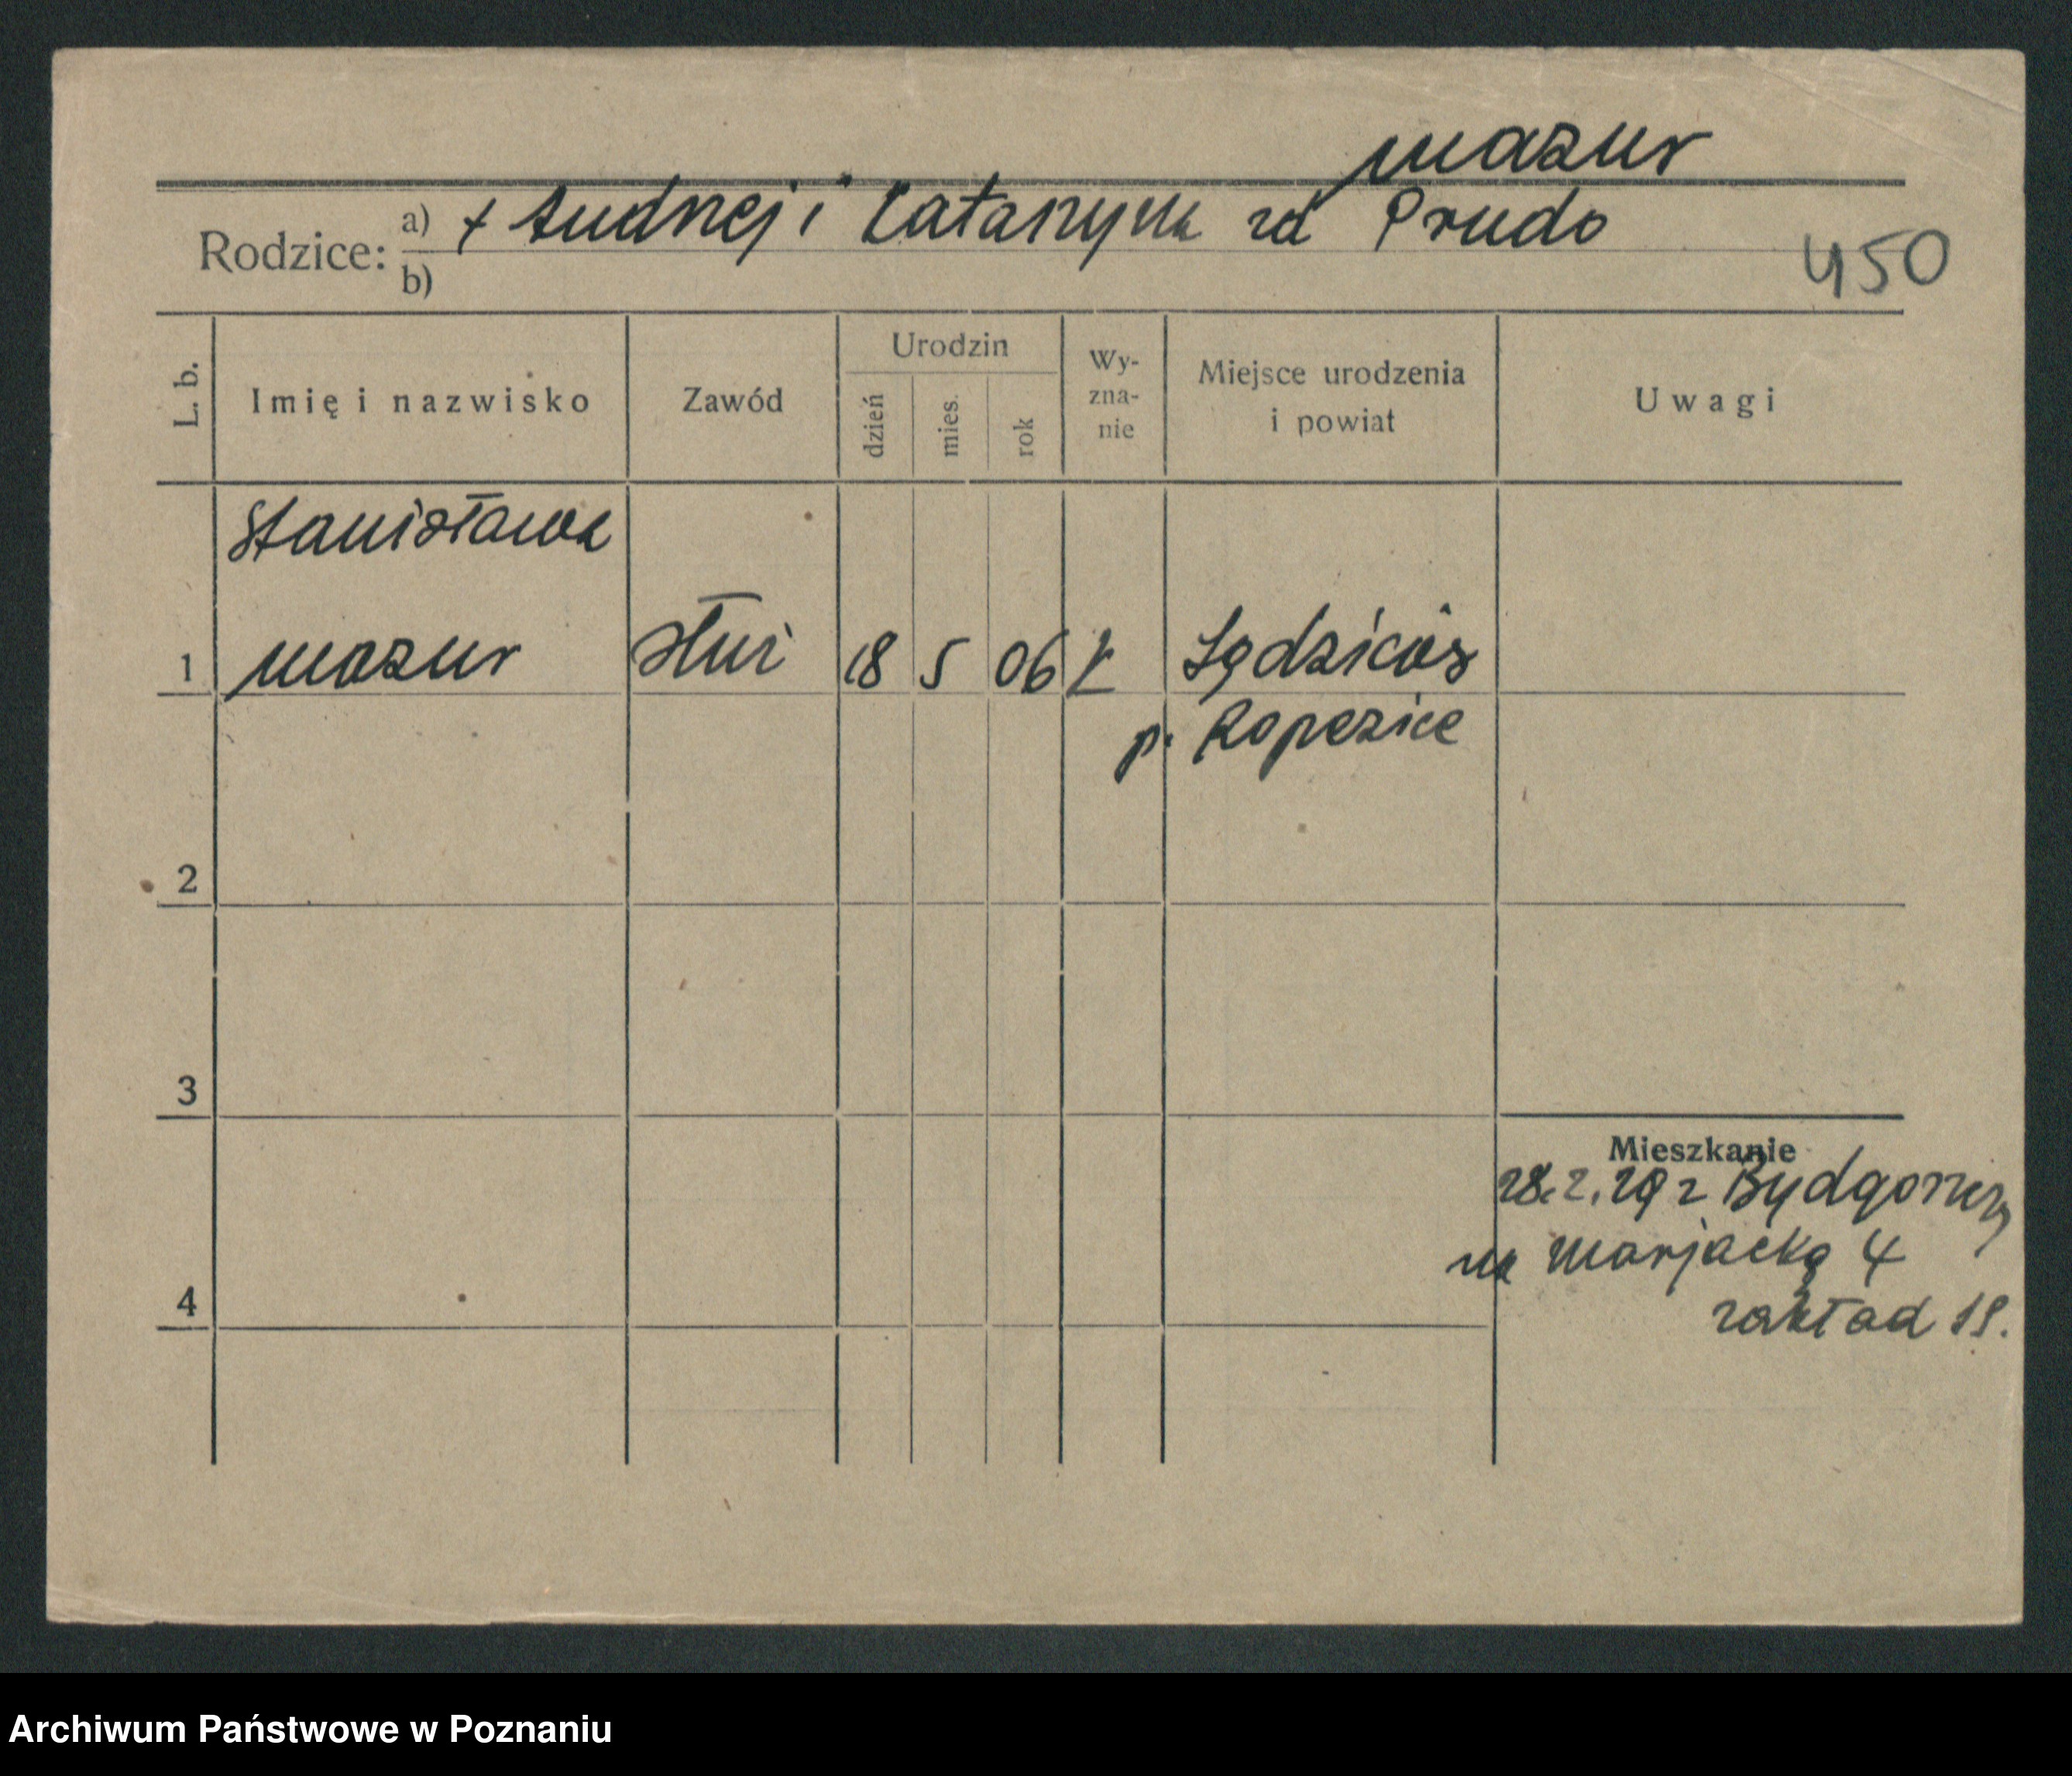 mazur
Rodzice: a) + Andrzej i Katarzyna zd Prudo
b)
450
L. b.
Imię i nazwisko
Zawód
Urodzin
dzień
mies.
rok
Wy-
zna-
nie
Miejsce urodzenia
i powiat
Uwagi
Stanisława
1 mazur służ 18 5 06 k
p. Ropczice
2
3
Mieszkanie
28.2.29 z Bydgoszczy
na Marjacką 4
4
zakład
Archiwum Państwowe w Poznaniu